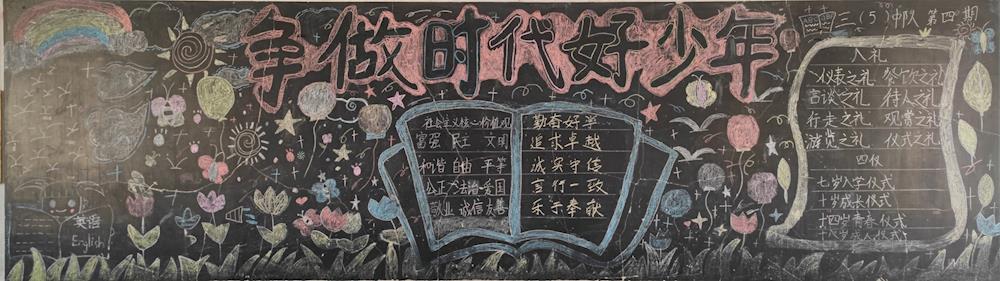 争做时代好少年
三(5)中队 第四期
社会主义核心价值观
富强 民主 文明
和谐 自由 平等
公正 法治 爱国
敬业 诚信 友善
勤奋好学
追求卓越
诚实守信
言行一致
乐于奉献
八礼
仪表之礼 餐饮之礼
言谈之礼 待人之礼
行走之礼 观赏之礼
游览之礼 仪式之礼
四仪
七岁入学仪式
十岁成长仪式
十四岁青春仪式
十八岁成人仪式
英语
English